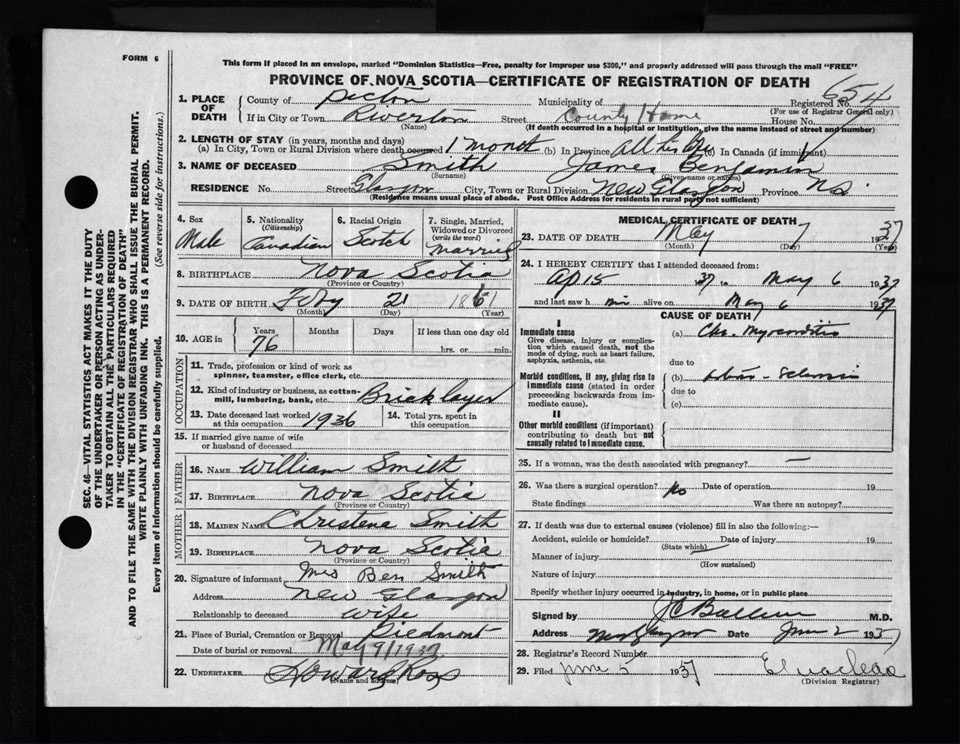 FORM 6
This form if placed in an envelope, marked "Dominion Statistics—Free, penalty for improper use $300," and properly addressed will pass through the mail "FREE"
PROVINCE OF NOVA SCOTIA—CERTIFICATE OF REGISTRATION OF DEATH
654
1. PLACE OF DEATH { County of Pictou Municipality of Registered No.
(For use of Registrar General only)
If in City or Town Riverton Street County Home House No.
(Name) (If death occurred in a hospital or institution, give the name instead of street and number)
2. LENGTH OF STAY (in years, months and days)
(a) In City, Town or Rural Division where death occurred 1 month (b) In Province All his life (c) In Canada (if immigrant)
3. NAME OF DECEASED Smith James Benjamin
(Surname) (Given name or names)
RESIDENCE No. Street Glasgow City, Town or Rural Division New Glasgow Province N.S.
(Residence means usual place of abode. Post Office Address for residents in rural parts not sufficient)
4. Sex 5. Nationality 6. Racial Origin 7. Single, Married,
(Citizenship) Widowed or Divorced
(write the word)
Male Canadian Scotch Married
8. BIRTHPLACE Nova Scotia
(Province or Country)
9. DATE OF BIRTH Feby 21 1861
(Month) (Day) (Year)
10. AGE in { Years Months Days If less than one day old
76 hrs. or min.
OCCUPATION
11. Trade, profession or kind of work as
spinner, teamster, office clerk, etc.
12. Kind of industry or business, as cotton-
mill, lumbering, bank, etc. Bricklayer
13. Date deceased last worked 14. Total yrs. spent in
at this occupation 1936 this occupation
15. If married give name of wife
or husband of deceased
FATHER
16. NAME William Smith
17. BIRTHPLACE Nova Scotia
(Province or Country)
MOTHER
18. MAIDEN NAME Christena Smith
19. BIRTHPLACE Nova Scotia
(Province or Country)
20. Signature of informant Mrs Ben Smith
Address New Glasgow
Relationship to deceased Wife
21. Place of Burial, Cremation or Removal Piedmont
Date of burial or removal May 9/1937
22. UNDERTAKER Howard Ross
(Name and Address)
MEDICAL CERTIFICATE OF DEATH
23. DATE OF DEATH May 7 1937
(Month) (Day) (Year)
24. I HEREBY CERTIFY that I attended deceased from:
Ap 15 37 to May 6 1937
and last saw him alive on May 6 1937
CAUSE OF DEATH
I
Immediate cause (a) Chr. Myocarditis
Give disease, injury or complica-
tion which caused death, not the
mode of dying, such as heart failure,
asphyxia, asthenia, etc. due to
Morbid conditions, if any, giving rise to (b)
immediate cause (stated in order due to
proceeding backwards from im-
mediate cause). (c)
II
Other morbid conditions (if important)
contributing to death but not
causally related to immediate cause.
25. If a woman, was the death associated with pregnancy? —
26. Was there a surgical operation? No Date of operation 19
State findings Was there an autopsy?
27. If death was due to external causes (violence) fill in also the following:—
Accident, suicide or homicide? Date of injury 19
(State which)
Manner of injury
(How sustained)
Nature of injury
Specify whether injury occurred in industry, in home, or in public place
Signed by M.D.
Address New Glasgow Date June 2 1937
28. Registrar's Record Number
29. Filed June 5 1937
(Division Registrar)
SEC. 46—VITAL STATISTICS ACT MAKES IT THE DUTY
OF THE UNDERTAKER OR PERSON ACTING AS UNDER-
TAKER TO OBTAIN ALL THE PARTICULARS REQUIRED
IN THE "CERTIFICATE OF REGISTRATION OF DEATH"
AND TO FILE THE SAME WITH THE DIVISION REGISTRAR WHO SHALL ISSUE THE BURIAL PERMIT.
WRITE PLAINLY WITH UNFADING INK. THIS IS A PERMANENT RECORD.
Every item of information should be carefully supplied. (See reverse side for instructions.)